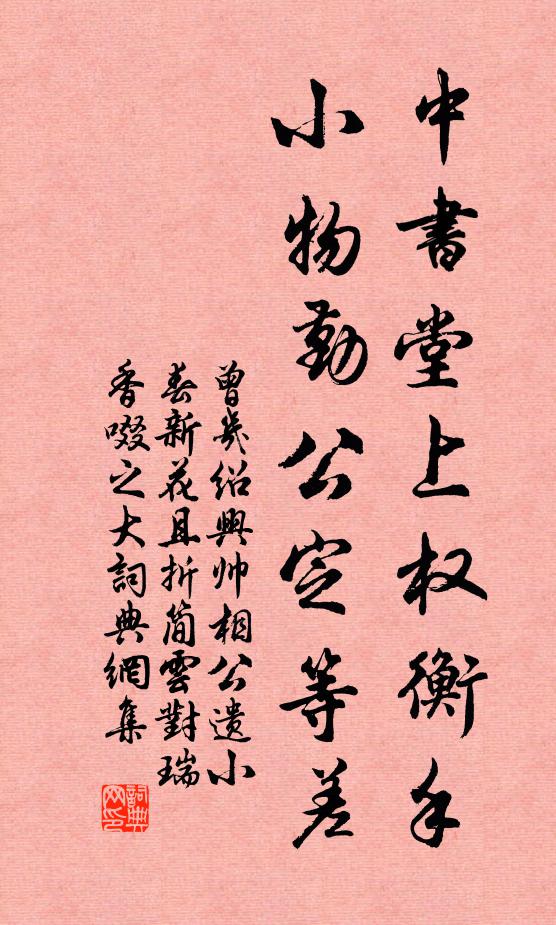 中書堂上权衡手
小物勤公定等差
曾幾紹興帅相公遗小
春新花且折简雲對瑞
香啜之大詞典網集
詞典网印